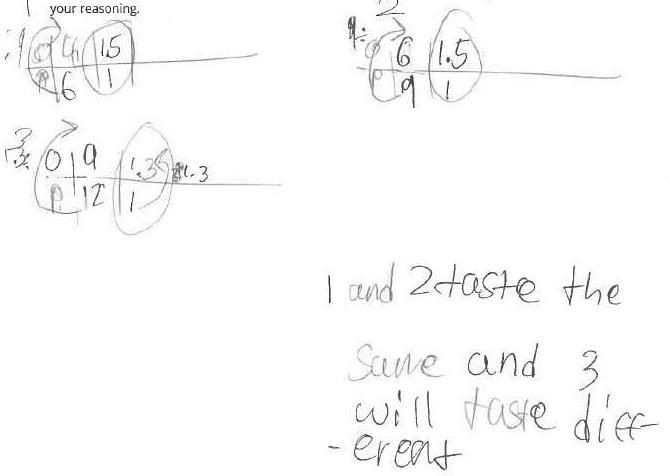 your reasoning.
1
2
O 4 1.5
P 6 1
O 6 1.5
P 9 1
3
O 9 1.35 1.3
P 12 1
1 and 2 taste the
same and 3
will taste diff
-erent